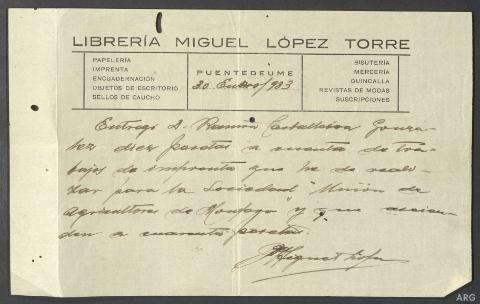 LIBRERÍA MIGUEL LÓPEZ TORRE
PAPELERÍA
IMPRENTA
ENCUADERNACIÓN
OBJETOS DE ESCRITORIO
SELLOS DE CAUCHO
PUENTEDEUME
20 Enero/933
BISUTERÍA
MERCERÍA
QUINCALLA
REVISTAS DE MODAS
SUSCRIPCIONES
Entregó D. Ramón Gonza-
lez diez pesetas a cuenta de tra-
bajos de imprenta que he de reali-
zar para la Sociedad "Unión de
Agricultores de Monfero" y que ascien-
den a cuarenta pesetas.
Miguel López
ARG